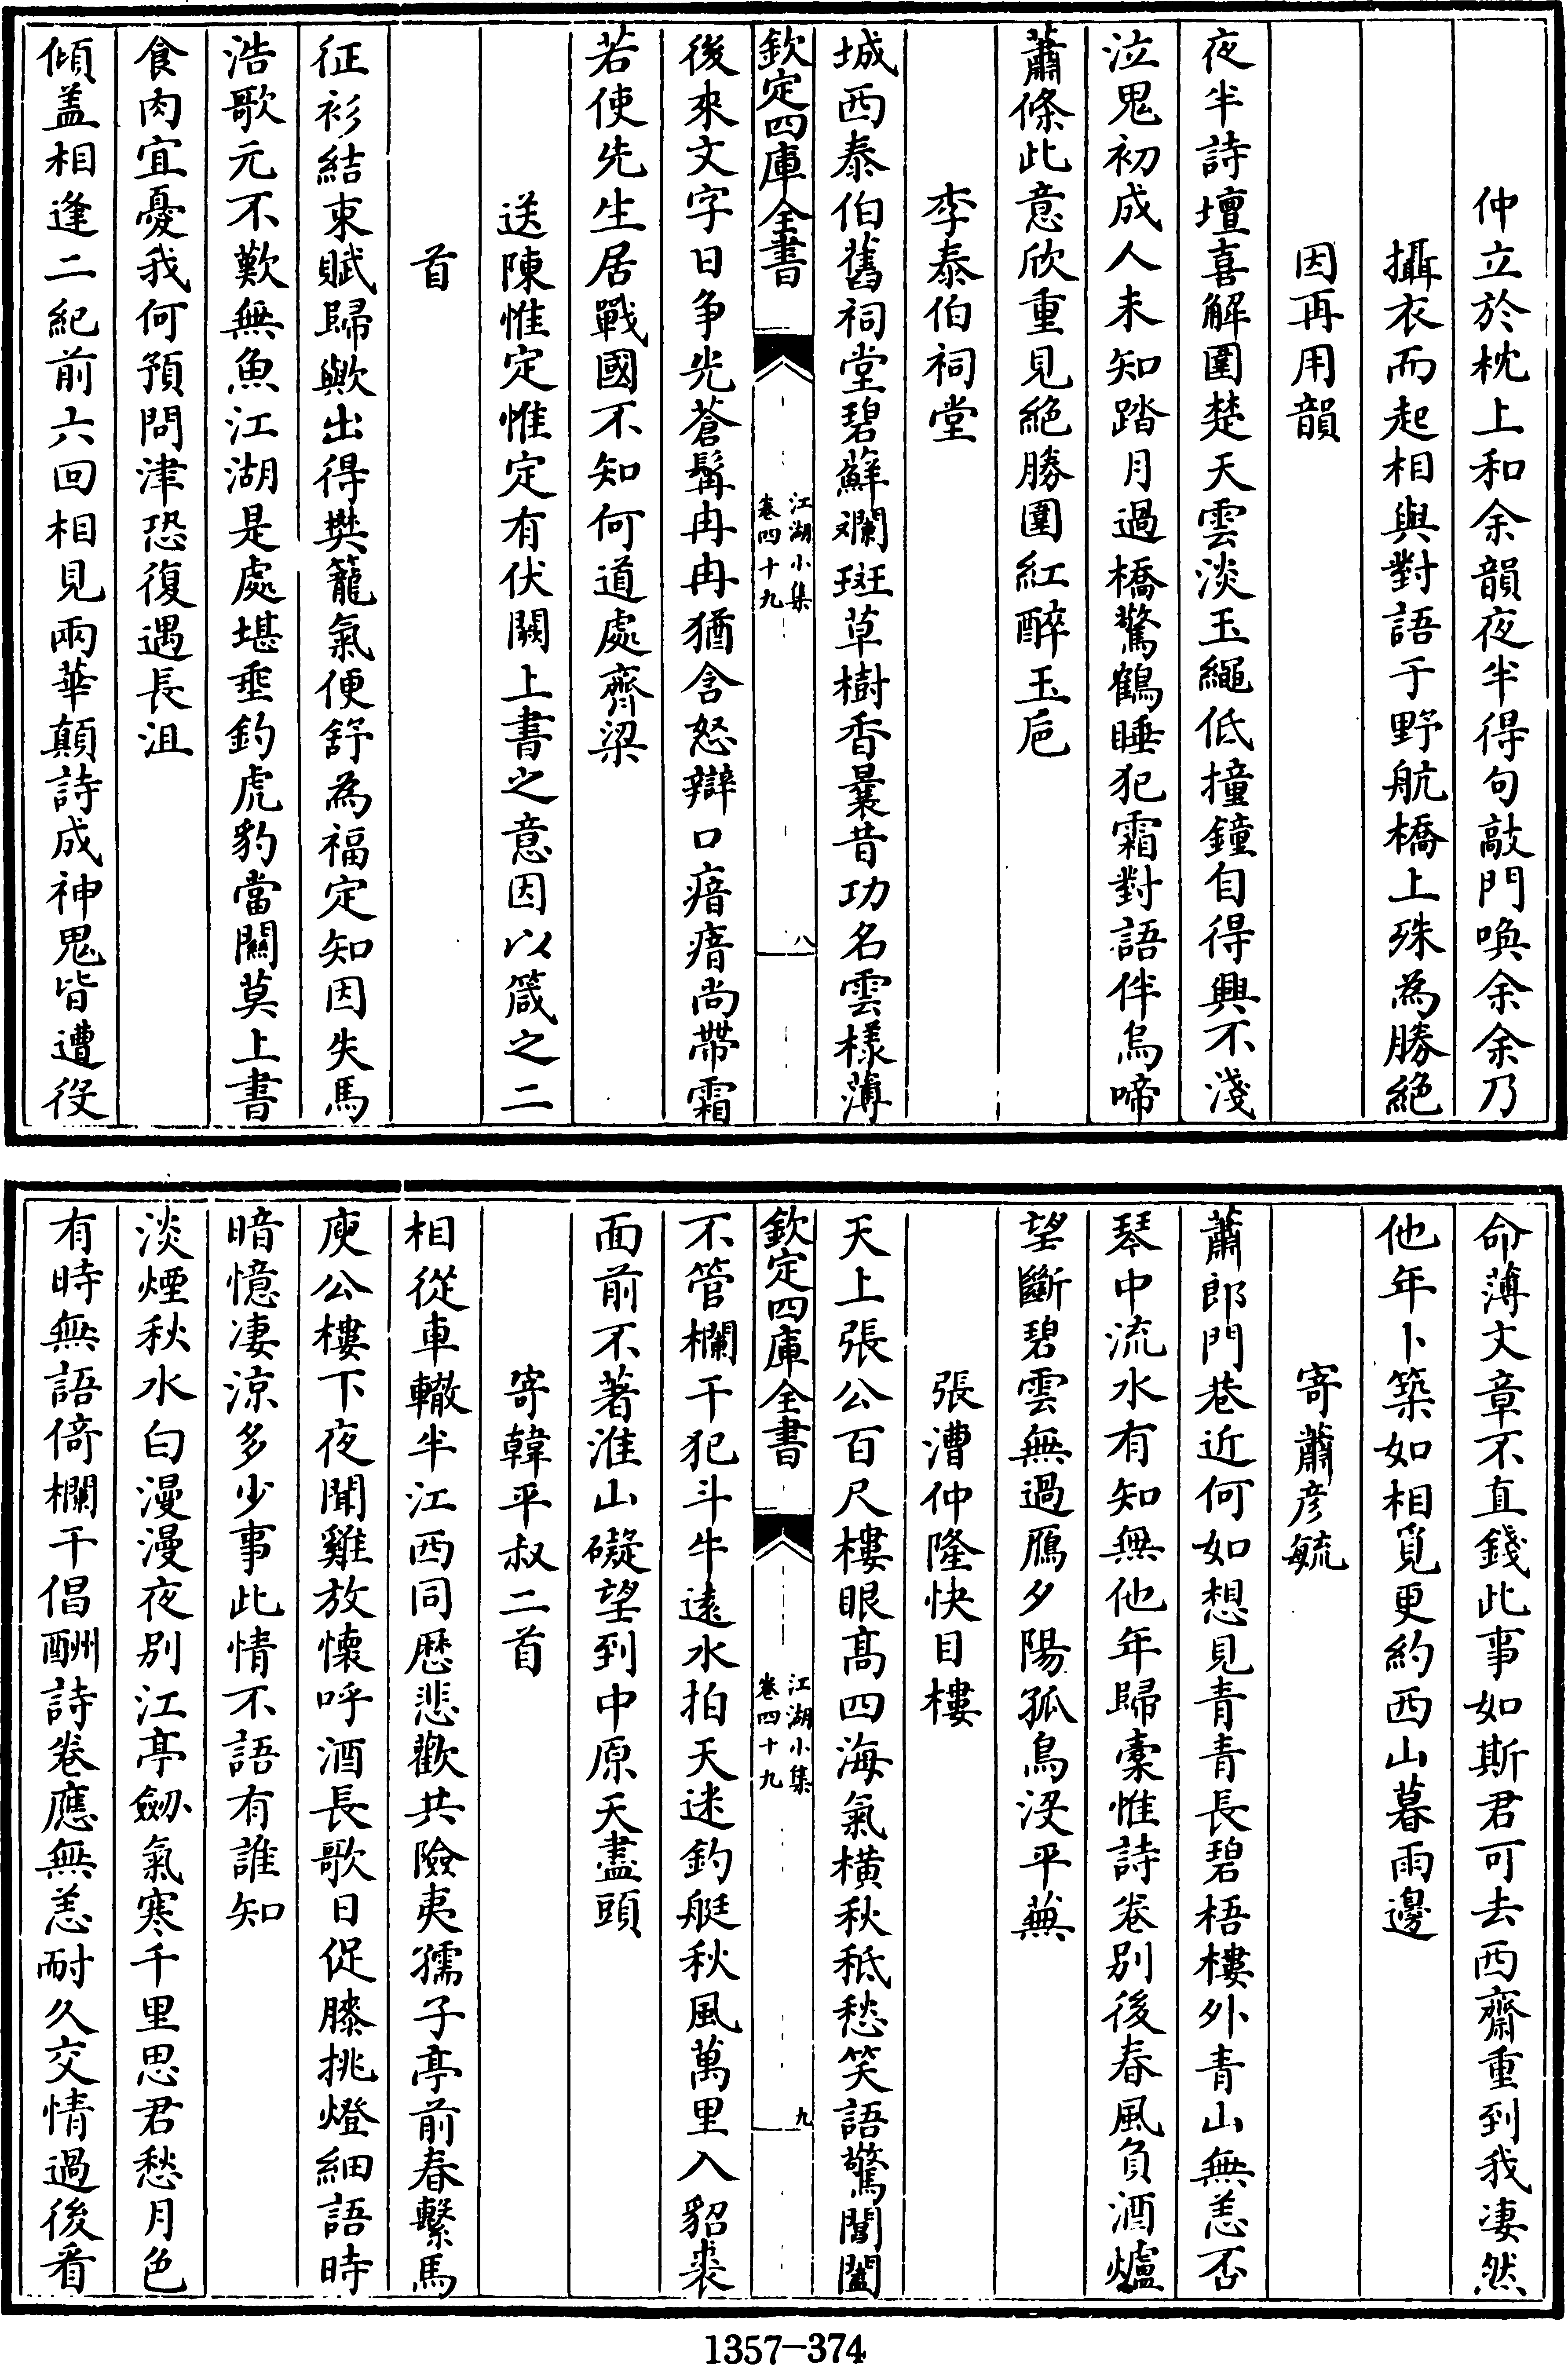 仲立於枕上和余韻夜半得句敲門喚余余乃
攝衣而起相與對語于野航橋上殊為勝絕
因再用韻
夜半詩壇喜解圍楚天雲淡玉繩低撞鐘自得興不淺
泣鬼初成人未知踏月過橋驚鶴睡犯霜對語伴烏啼
蕭條此意欣重見絕勝圍紅醉玉巵
李泰伯祠堂
城西泰伯舊祠堂碧蘚斕斑草樹香曩昔功名雲樣薄
欽定四庫全書
江湖小集
卷四十九
八
後來文字日争光蒼髯冉冉猶含怒辯口瘖瘖尚帶霜
若使先生居戰國不知何道處齊梁
送陳惟定惟定有伏闕上書之意因以箴之二
首
征衫結束賦歸歟出得樊籠氣便舒為福定知因失馬
浩歌元不歎無魚江湖是處堪垂釣虎豹當關莫上書
食肉宜憂我何預問津恐復遇長沮
傾盖相逢二紀前六回相見兩華顛詩成神鬼皆遭役
命薄文章不直錢此事如斯君可去西齋重到我淒然
他年卜築如相覓更約西山暮雨邊
寄蕭彦毓
蕭郎門巷近何如想見青青長碧梧樓外青山無恙否
琴中流水有知無他年歸橐惟詩卷别後春風負酒爐
望斷碧雲無過鴈夕陽孤鳥没平蕪
張漕仲隆快目樓
天上張公百尺樓眼髙四海氣横秋秖愁笑語驚閶闔
欽定四庫全書
江湖小集
卷四十九
九
不管欄干犯斗牛遠水拍天迷釣艇秋風萬里入貂裘
面前不著淮山礙望到中原天盡頭
寄韓平叔二首
相從車轍半江西同歴悲歡共險夷孺子亭前春繫馬
庾公樓下夜聞雞放懷呼酒長歌日促膝挑燈細語時
暗憶凄涼多少事此情不語有誰知
淡煙秋水白漫漫夜别江亭劒氣寒千里思君愁月色
有時無語倚欄干倡酬詩卷應無恙耐久交情過後看
1357-374